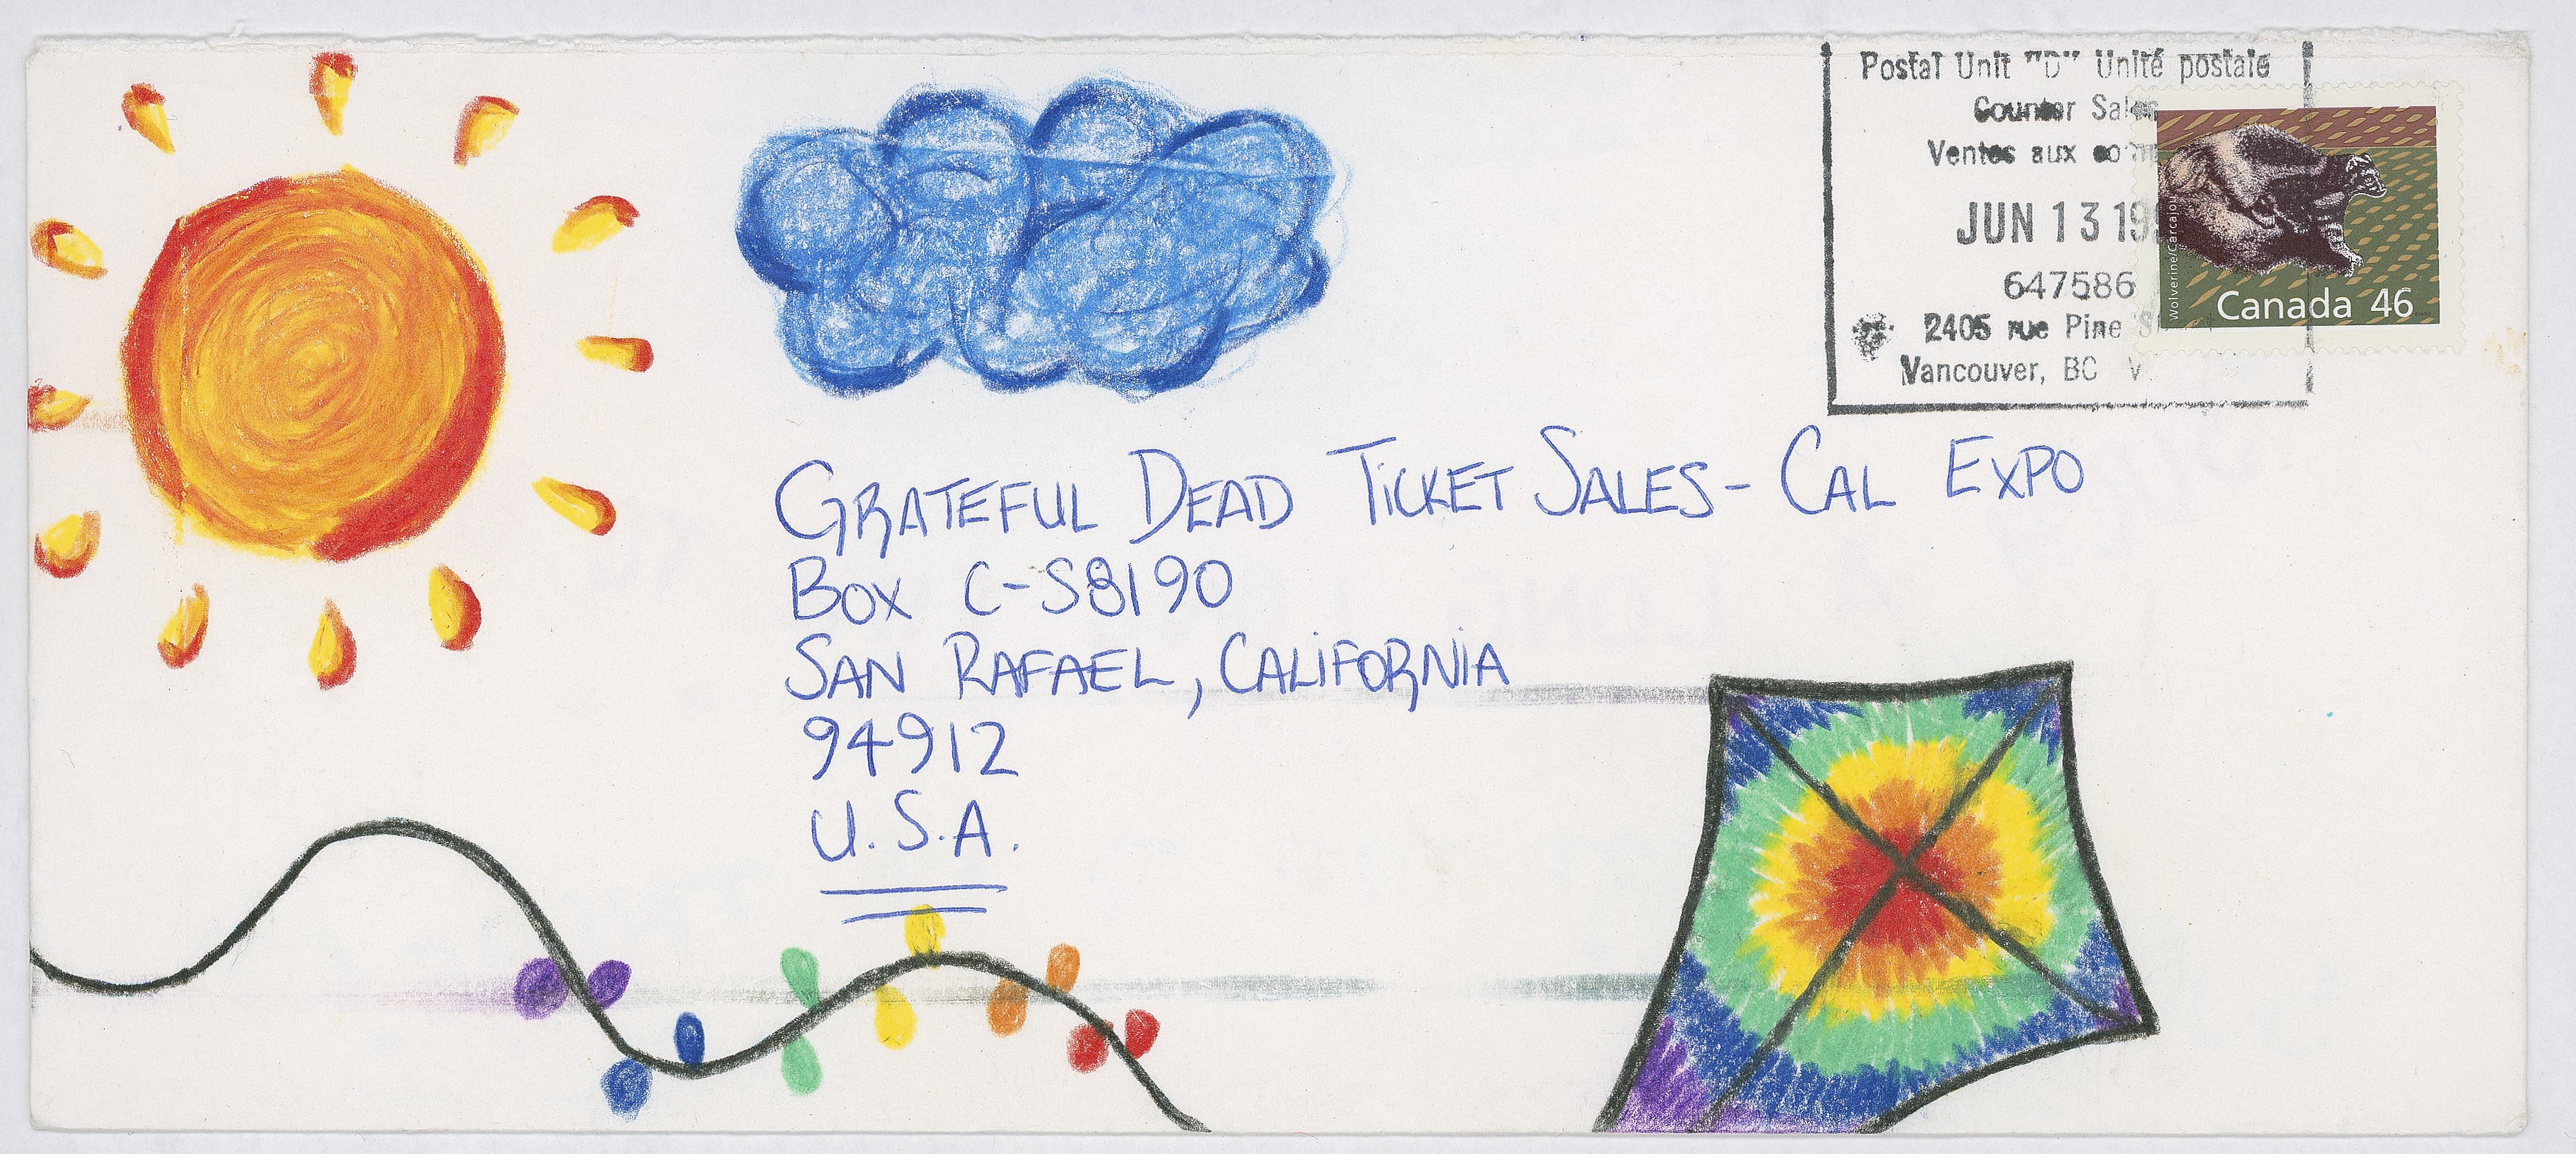 Postal Unit "D" Unité postale
Counter Sales
Ventes aux
JUN 13 19
647586
2405 rue Pine
Vancouver, BC V
Wolverine/Carcajou
Canada 46
GRATEFUL DEAD TICKET SALES - CAL EXPO
BOX C-S8190
SAN RAFAEL, CALIFORNIA
94912
U.S.A.